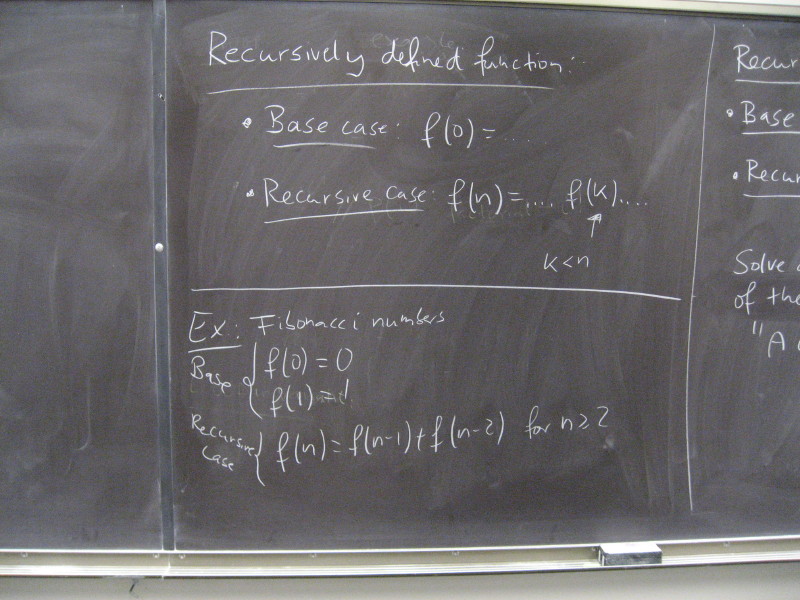 Recursively defined function:
• Base case: f(0) = ....
• Recursive case: f(n) = .... f(k) ....
↑
k < n
Ex: Fibonacci numbers
Base { f(0) = 0
f(1) = 1
Recursive case { f(n) = f(n-1) + f(n-2) for n ≥ 2
Recur
• Base
• Recur
Solve
of the
"A